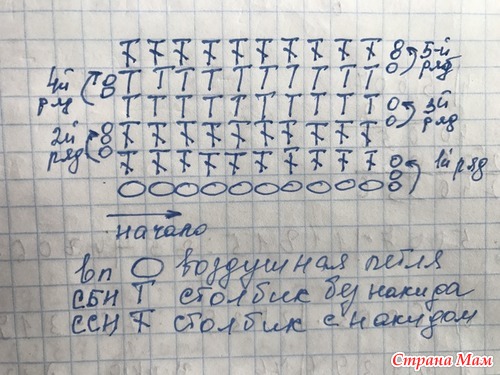 5-й
ряд
4й
ряд
3й
ряд
2й
ряд
1й ряд
начало
вп воздушная петля
СБН столбик без накида
ССН столбик с накидом
Страна Мам